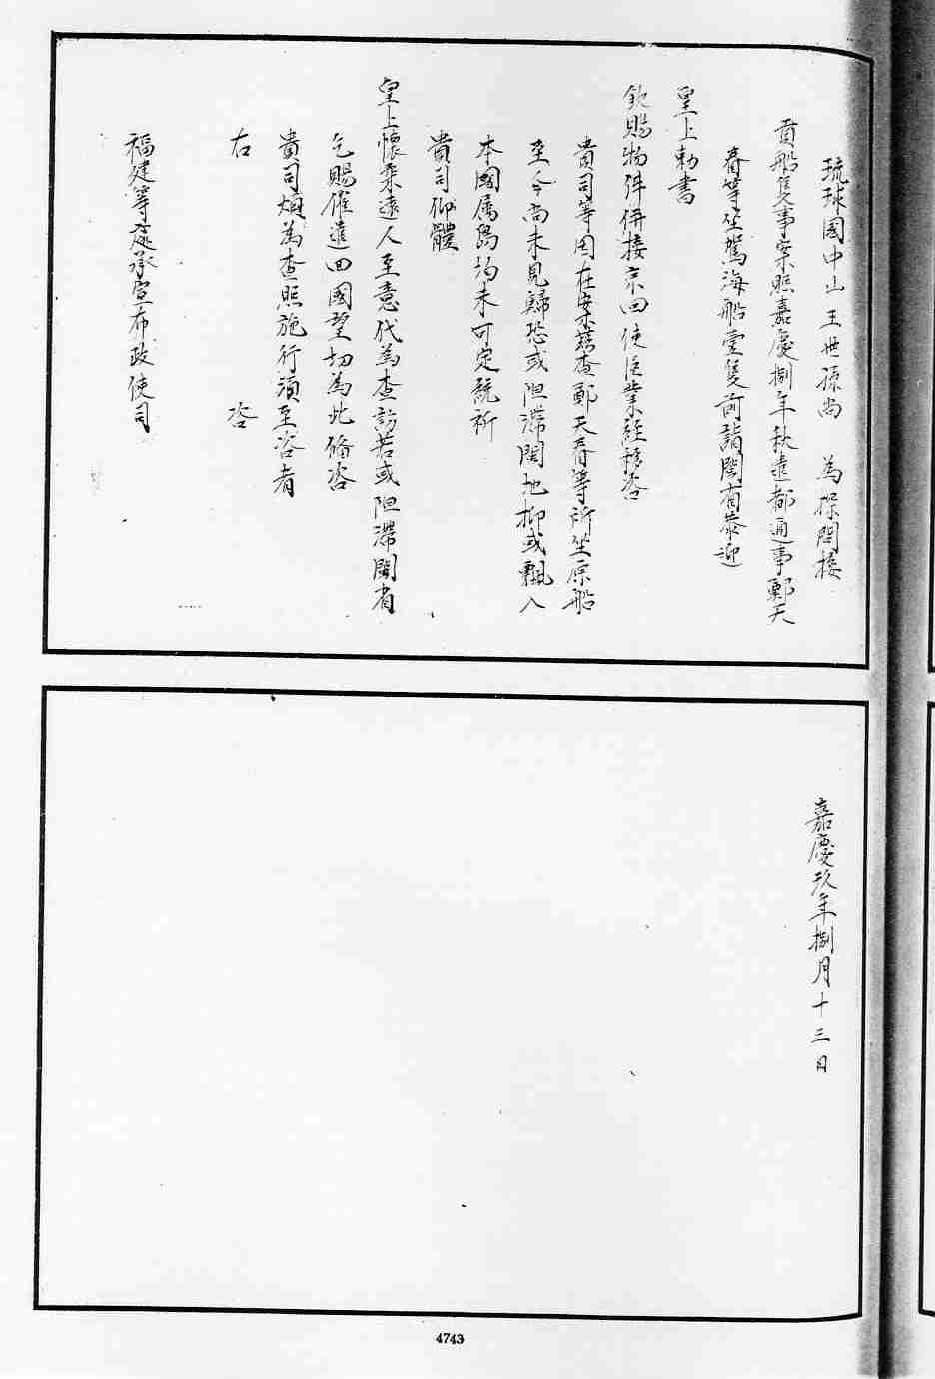 琉球國中山王世孫尚　為探問接
貢船隻事案照嘉慶捌年秋遣都通事鄭天
春等坐駕海船壹隻前詣閩省恭迎
皇上勅書
欽賜物件併接京回使臣業經移咨
貴司等因在案茲查鄭天春等所坐原船
至今尚未見歸恐或阻滯閩地抑或飄入
本國属島均未可定統祈
貴司仰體
皇上懷柔遠人至意代為查訪若或阻滯閩省
乞賜催遣回國望切為此備咨
貴司煩為查照施行須至咨者
右　咨
福建等處承宣布政使司
嘉慶玖年捌月十三日
4743